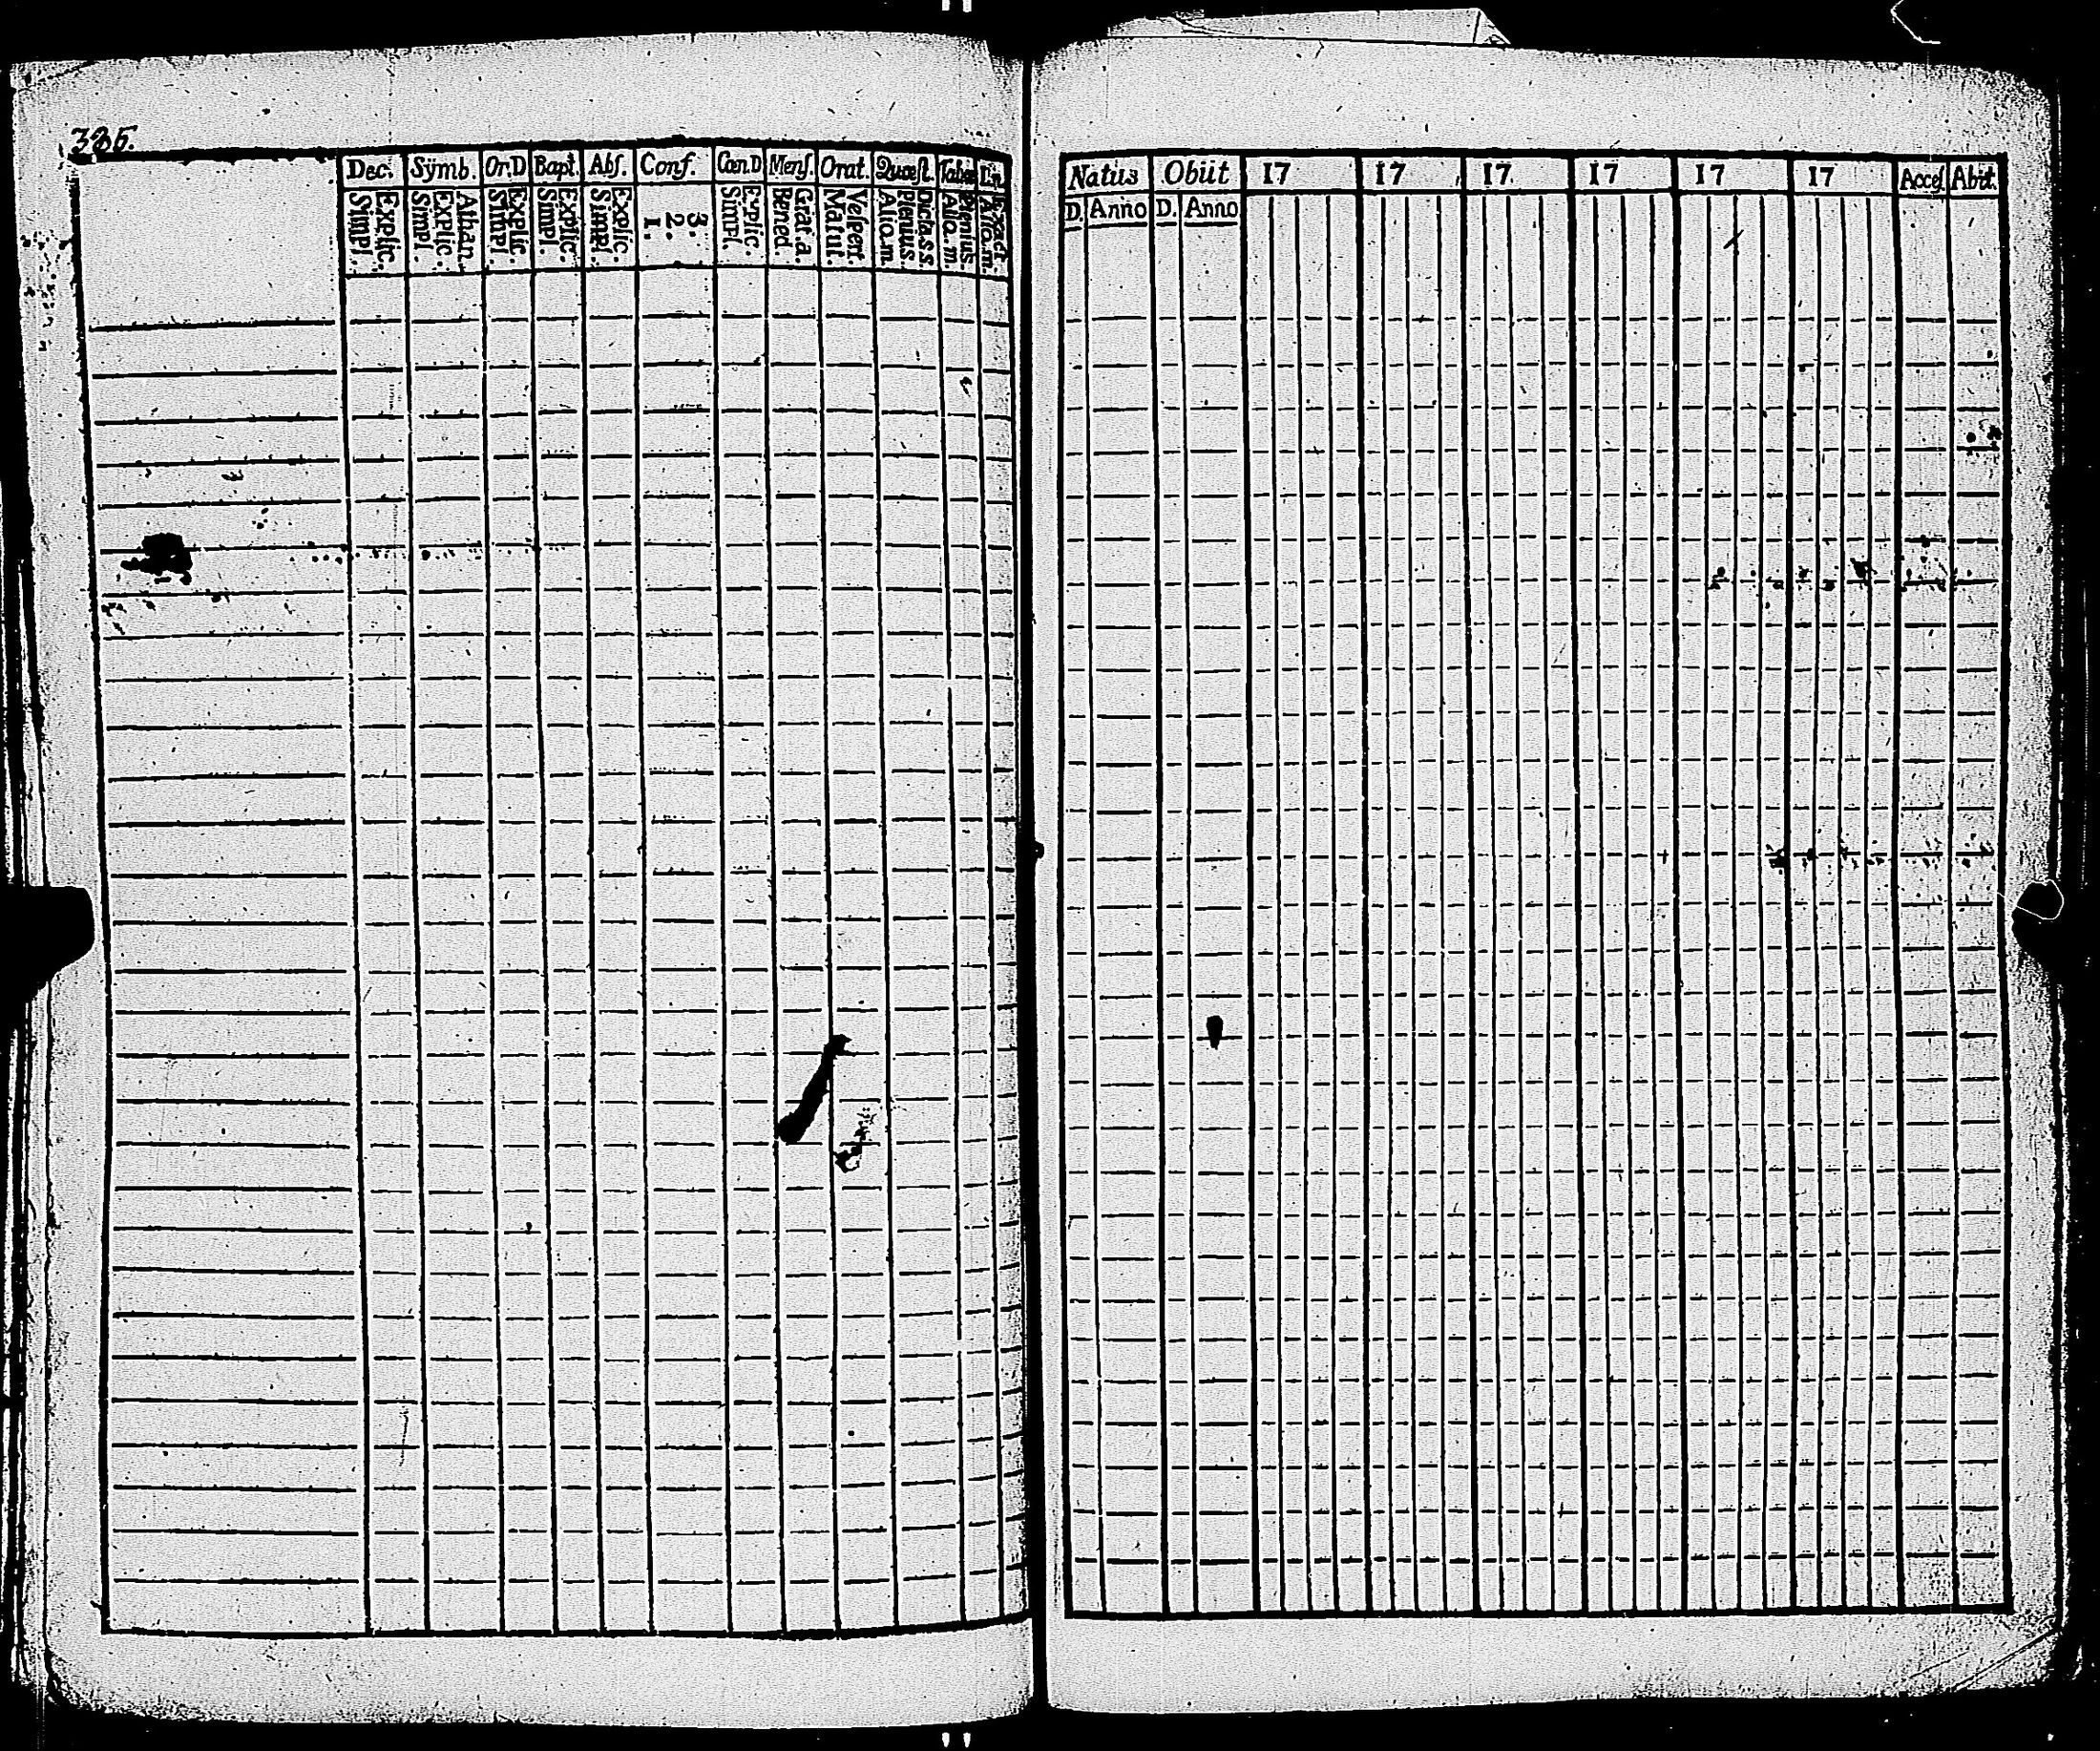 Dec. Sÿmb. Or.D Bapt. Abſ. Conf. Can.D Menſ. Orat. Quæſt.
Explic. Simpl.
Athan. Explic. Simpl.
Explic. Simpl.
Explic. Simpl.
Explic. Simpl.
3. 2. 1.
Explic. Simpl.
Grat. a. Bened.
Veſpert. Matut.
Dicta. s. s. Plenius. Alio. m.
Plenius. Alio. m.
Natus Obiit 17 17 17 17 17 17 Acceſ Abit.
D. Anno D. Anno